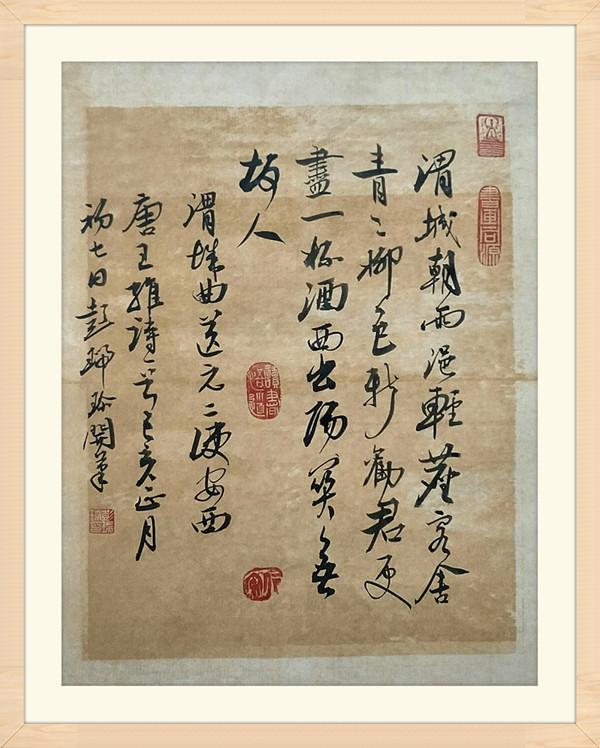 渭城朝雨浥輕塵客舍
青々柳色新勸君更
盡一杯酒西出陽關無
故人
渭城曲送元二使安西
唐王維詩一首己亥正月
初七日彭開筆